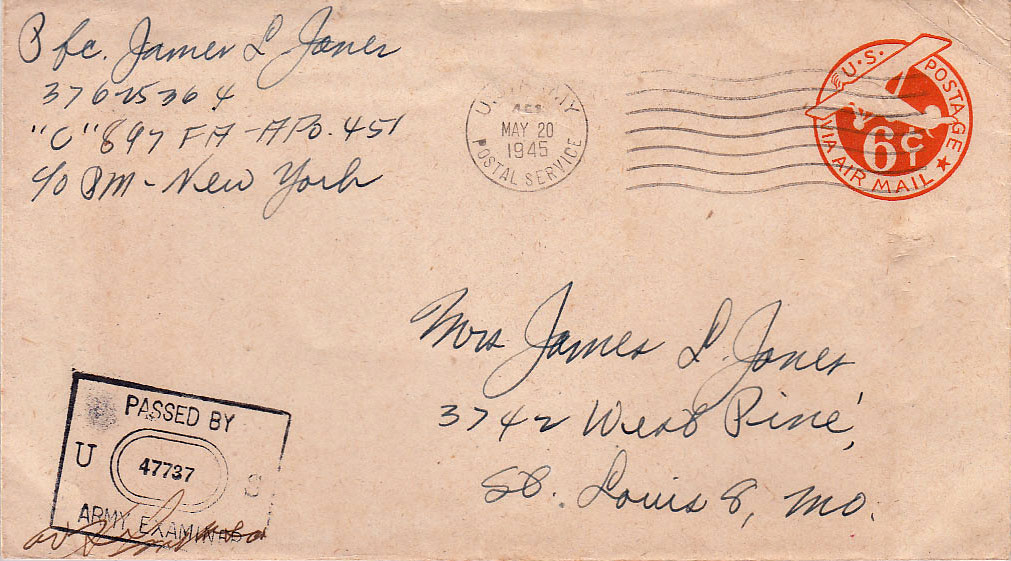 Pfc. James L Jones
37625364
"C" 897 FA - APO. 451
c/o PM - New York
U.S. ARMY
MAY 20
1945
POSTAL SERVICE
U.S. POSTAGE
6¢
VIA AIR MAIL
Mrs James L. Jones
3742 West Pine,
St. Louis 8, Mo.
PASSED BY
U 47737 S
ARMY EXAMINER